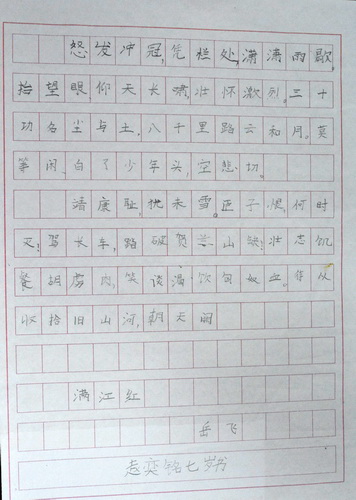 怒发冲冠,凭栏处,潇潇雨歇。
抬望眼,仰天长啸,壮怀激烈。三十
功名尘与土,八千里路云和月。莫
等闲,白了少年头,空悲切。
靖康耻犹未雪。臣子恨,何时
灭!驾长车,踏破贺兰山缺!壮志饥
餐胡虏肉,笑谈渴饮匈奴血。待从
收拾旧山河,朝天阙
满江红
岳飞
赵奕铭七岁书